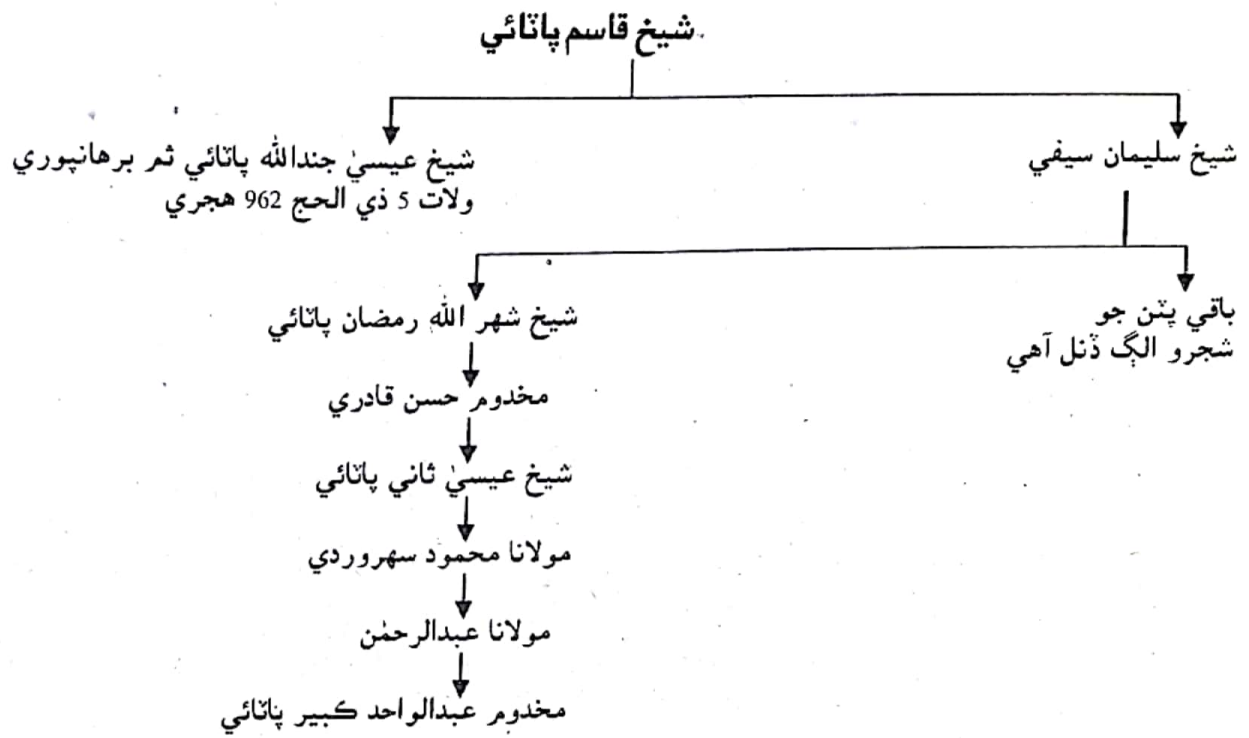 شيخ قاسم پاٽائي
شيخ سليمان سيفي
شيخ عيسيٰ جندالله پاٽائي ثم برهانپوري
ولات 5 ذي الحج 962 هجري
باقي پٽن جو
شجرو الڳ ڏنل آهي
شيخ شهر الله رمضان پاٽائي
مخدوم حسن قادري
شيخ عيسيٰ ثاني پاٽائي
مولانا محمود سهروردي
مولانا عبدالرحمٰن
مخدوم عبدالواحد ڪبير پاٽائي